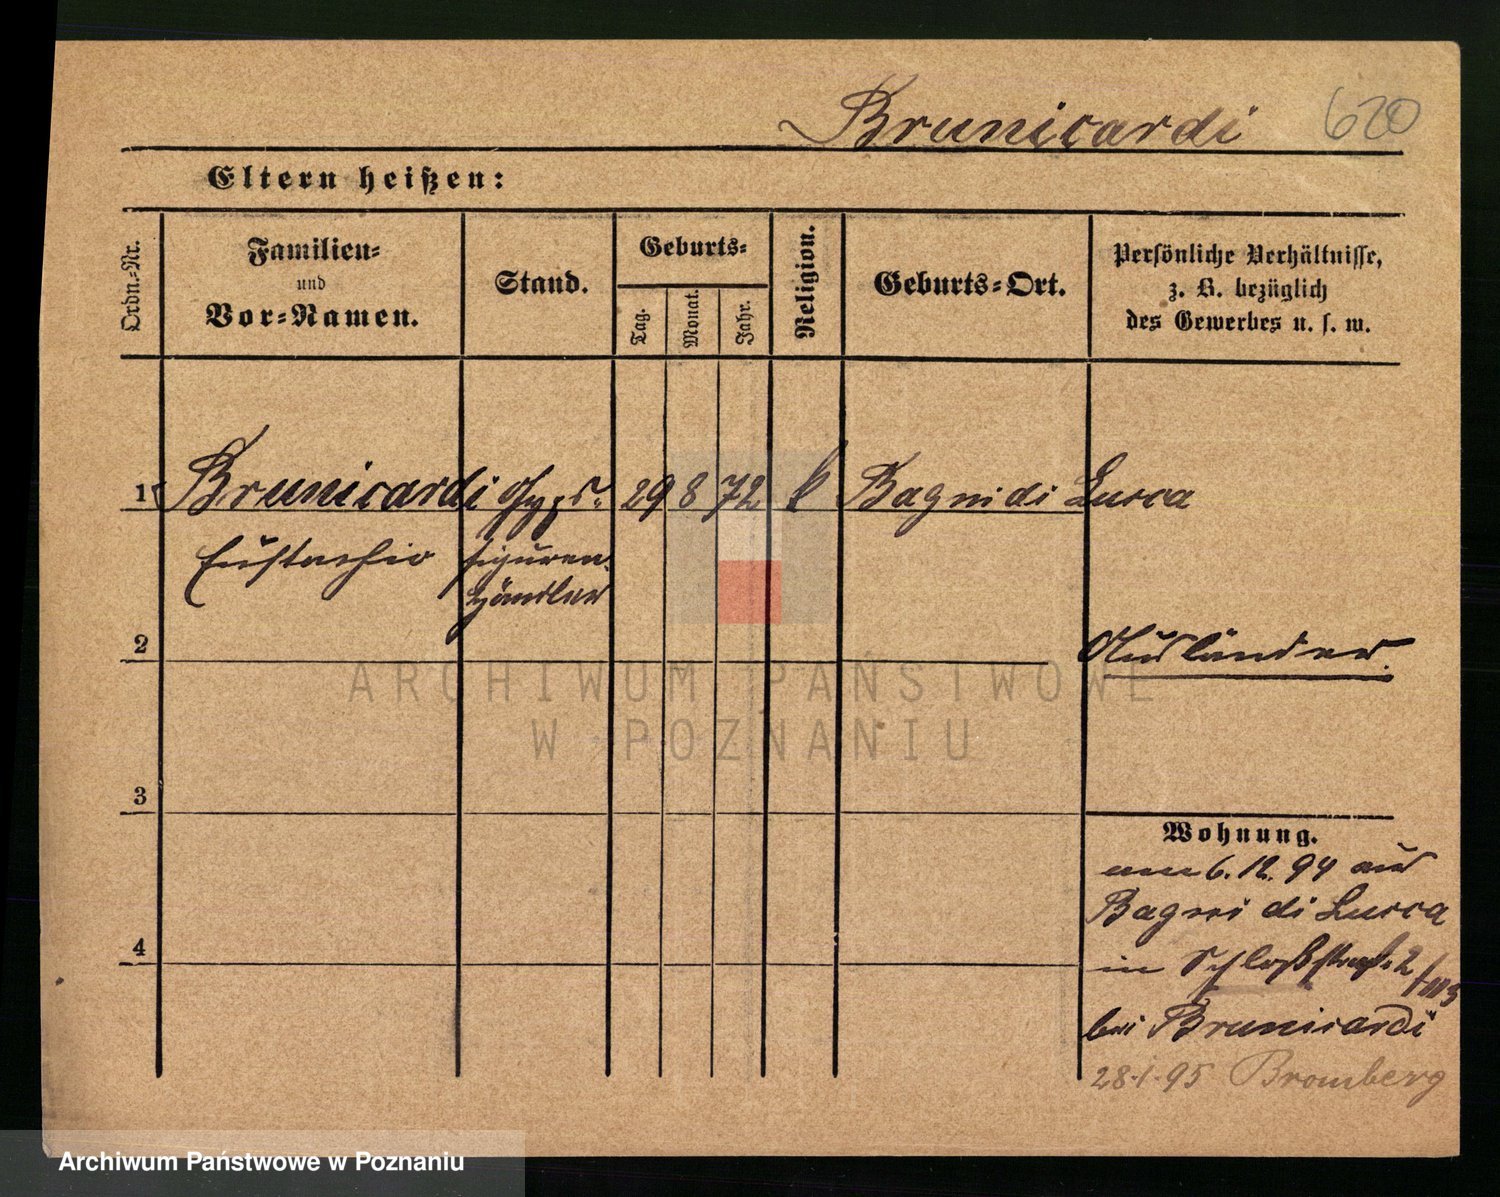 Brunicardi 620
Eltern heißen:
Ordn.-Nr.
Familien-
und
Vor-Namen.
Stand.
Geburts-
Tag.
Monat.
Jahr.
Religion.
Geburts-Ort.
Persönliche Verhältnisse,
z. B. bezüglich
des Gewerbes u. s. w.
1 Brunicardi Gyps- 29 8 72 k Bagni di Lucca
Eustachio figuren-
händler
2
Ausländer.
ARCHIWUM PAŃSTWOWE
W POZNANIU
3
Wohnung.
am 6.12.94 aus
Bagni di Lucca
4
in Schloßstraße 2
bei Brunicardi
28.1.95 Bromberg
Archiwum Państwowe w Poznaniu